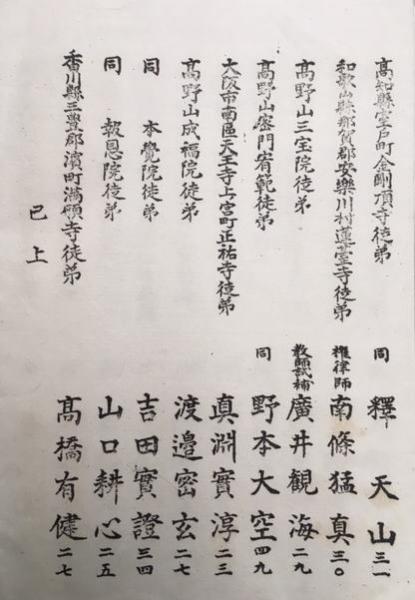 高知縣室戸町金剛頂寺徒弟 同 釋天山 三一
和歌山縣那賀郡安樂川村蓮臺寺徒弟 権律師 南條猛真 三〇
髙野山三宝院徒弟 教師試補 廣井観海 二九
髙野山密門宥範徒弟 同 野本大空 四九
大阪市南區天王寺上宮町正祐寺徒弟 真淵實淳 二三
髙野山成福院徒弟 渡邉密玄 二七
同 本覺院徒弟 吉田實證 三四
同 報恩院徒弟 山口耕心 二五
香川縣三豊郡濱町満願寺徒弟 髙橋有健 二七
已上